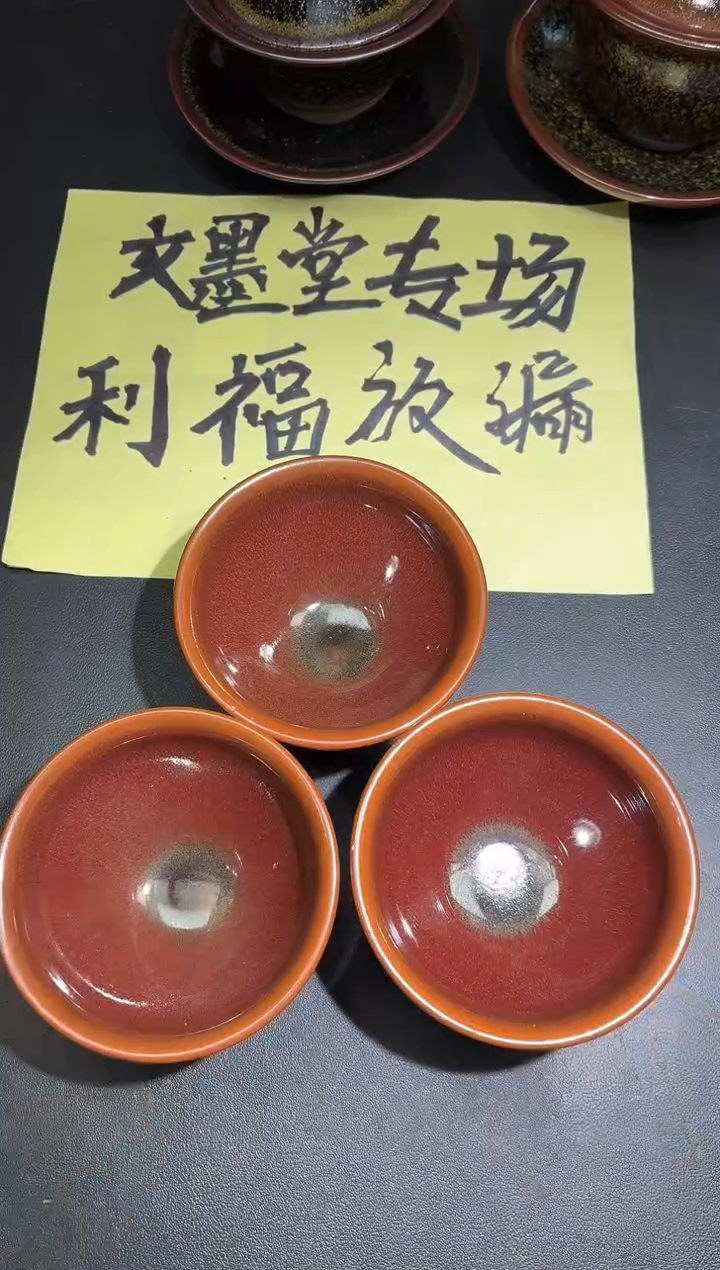 文墨堂专场
利福放漏